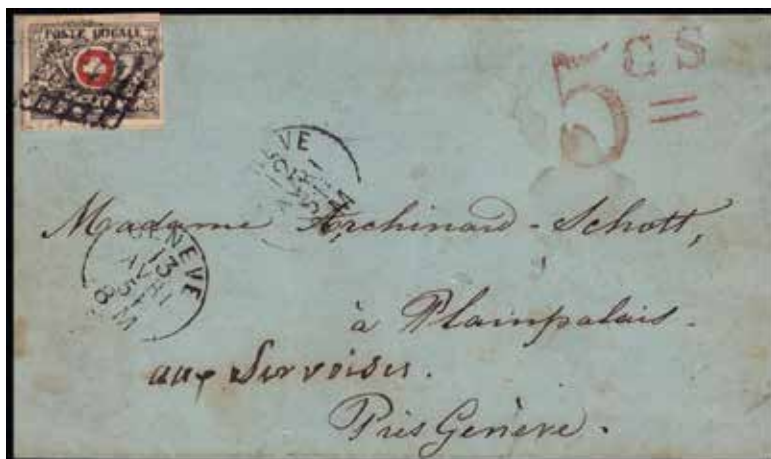 POSTE LOCALE
5 CS
=
VE
GENEVE
13
AVRIL
51
8 M
Madame Archinard-Schott,
à Plainpalais.
aux Servoises.
Près Genève.